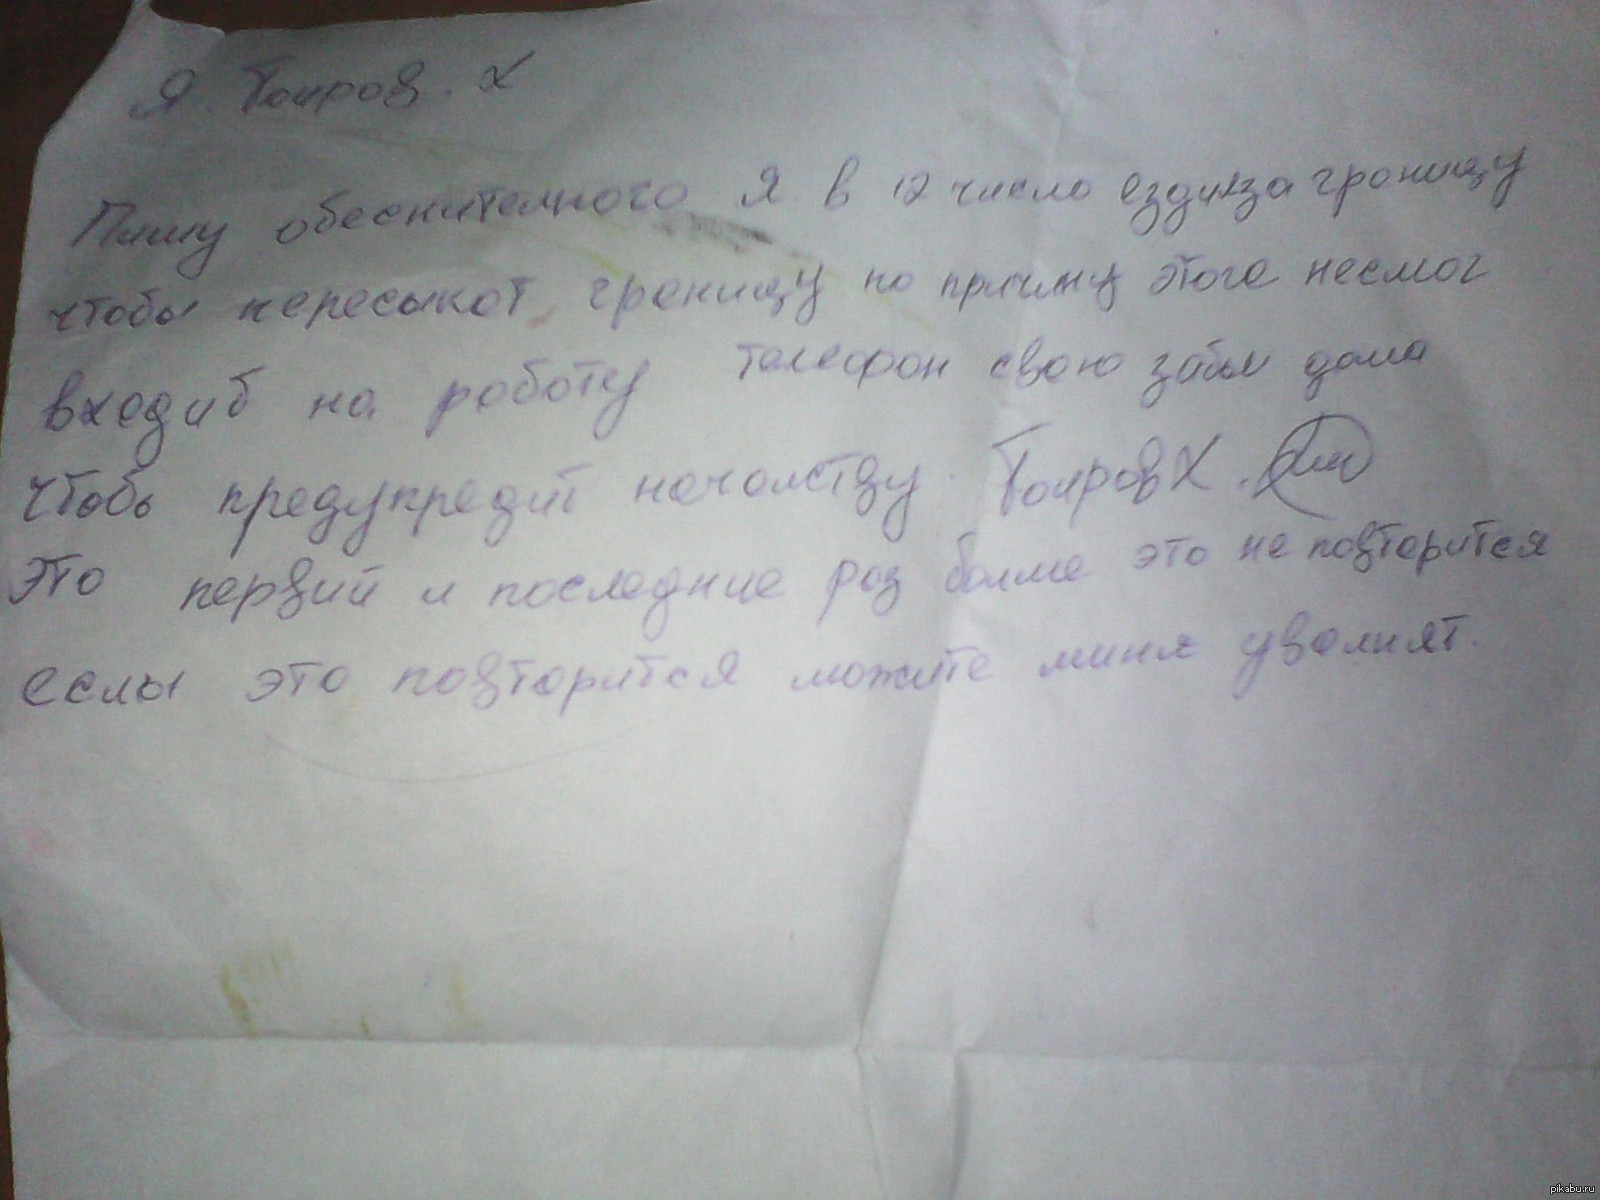 Я. Тоиров. Х
Пишу обеснителного Я в 12 число ездил за границу
чтобы пересыкот границу по причину этого несмог
входиб на роботу телефон свою забыл дома
чтобы предупредит началству. Тоиров Х.
Это первий и последние роз болше это не повторится
еслы это повторится можите миня уволнят.
pikabu.ru